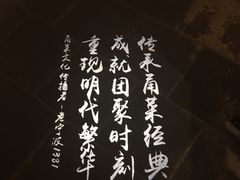 传承甬菜经典
成就团聚时刻
重现明代繁华
甬菜文化传播者-老宁波1381